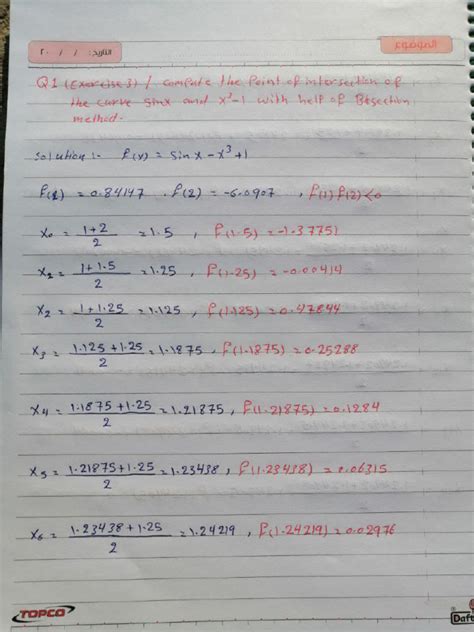 الموضوع
التاريخ: / / ٢٠
Q1 (Exercise 3) / compute the point of intersection of
the curve sinx and x³-1 with help of Bisection
method.
solution :- f(x) = sin x - x³ + 1
f(1) = 0.84147 . f(2) = -6.0907 , f(1) f(2) < 0
x₀ = 1+2 / 2 = 1.5 , f(1.5) = -1.37751
x₁ = 1+1.5 / 2 = 1.25 , f(1.25) = -0.00414
x₂ = 1+1.25 / 2 = 1.125 , f(1.125) = 0.47844
x₃ = 1.125+1.25 / 2 = 1.1875 , f(1.1875) = 0.25288
x₄ = 1.1875+1.25 / 2 = 1.21875 , f(1.21875) = 0.1284
x₅ = 1.21875+1.25 / 2 = 1.23438 , f(1.23438) = 0.06315
x₆ = 1.23438+1.25 / 2 = 1.24219 , f(1.24219) = 0.02976
TOPCO
Daft